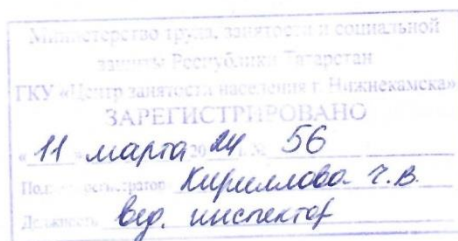 Министерство труда, занятости и социальной
защиты Республики Татарстан
ГКУ «Центр занятости населения г. Нижнекамска»
ЗАРЕГИСТРИРОВАНО
«11» марта 2024 г. № 56
Подпись регистратора Кириллова Ч.В.
Должность вед. инспектор